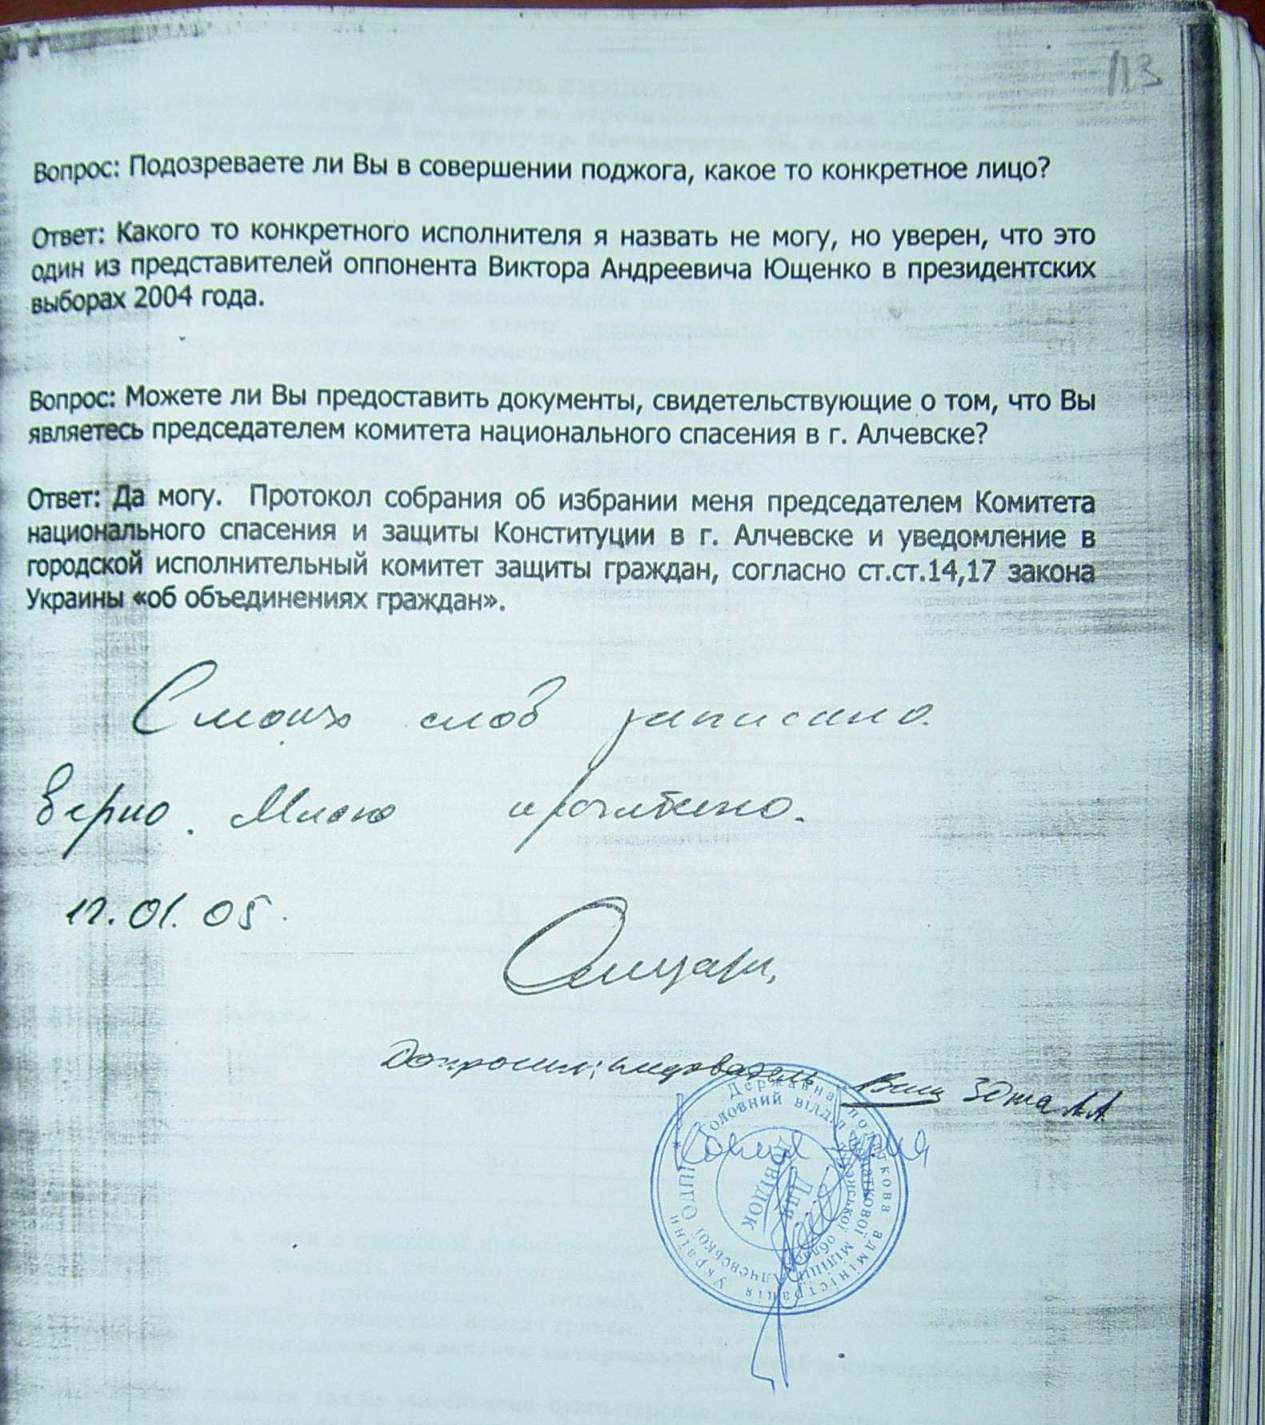 113
Вопрос: Подозреваете ли Вы в совершении поджога, какое то конкретное лицо?
Ответ: Какого то конкретного исполнителя я назвать не могу, но уверен, что это
один из представителей оппонента Виктора Андреевича Ющенко в президентских
выборах 2004 года.
Вопрос: Можете ли Вы предоставить документы, свидетельствующие о том, что Вы
являетесь председателем комитета национального спасения в г. Алчевске?
Ответ: Да могу. Протокол собрания об избрании меня председателем Комитета
национального спасения и защиты Конституции в г. Алчевске и уведомление в
городской исполнительный комитет защиты граждан, согласно ст.ст.14,17 закона
Украины «об объединениях граждан».
С моих слов записано
верно. Мною прочитано.
12.01.05.
Допросил: следователь
Державна податкова адміністрація України
Головний відділ податкової міліції Алчевської ОДПІ
Луганської області
Для
довідок
Копия верна